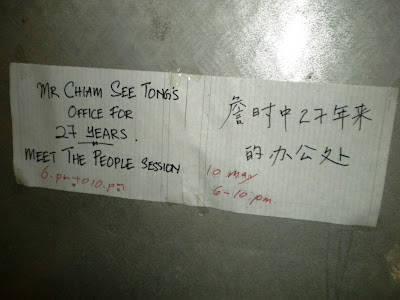 MR CHIAM SEE TONG'S
OFFICE FOR
27 YEARS.
MEET THE PEOPLE SESSION
6.pm to 10.pm
詹时中27年来
的办公处
10 may
6-10 pm